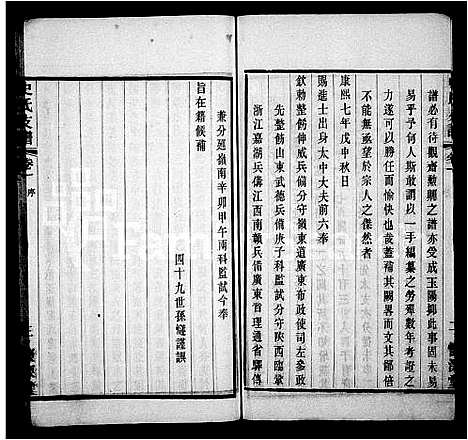 譜必有待觀齋勲爾之譜亦受成玉陽抑此事固未易
易乎予何人斯敢謂以一手編纂之勞殫數年考證之
力遂可以勝任而愉快也哉蓋補其闕畧而文其鄙倍
力不無亟望於宗人之傑然者
康熙七年戊申秋日
賜進士出身太中大夫前六奉
欽勅整飭伸威兵備分守嶺東道廣東布政使司
先整飭山東武德兵備庚子科監試分守陝西臨鞏
浙江嘉湖兵備江西南贛兵備廣東首理通省驛傳
兼分廵嶺南辛卯甲午兩科監試今奉
旨在籍候補
四十九世孫燧謹譔
史氏支譜
卷一
序